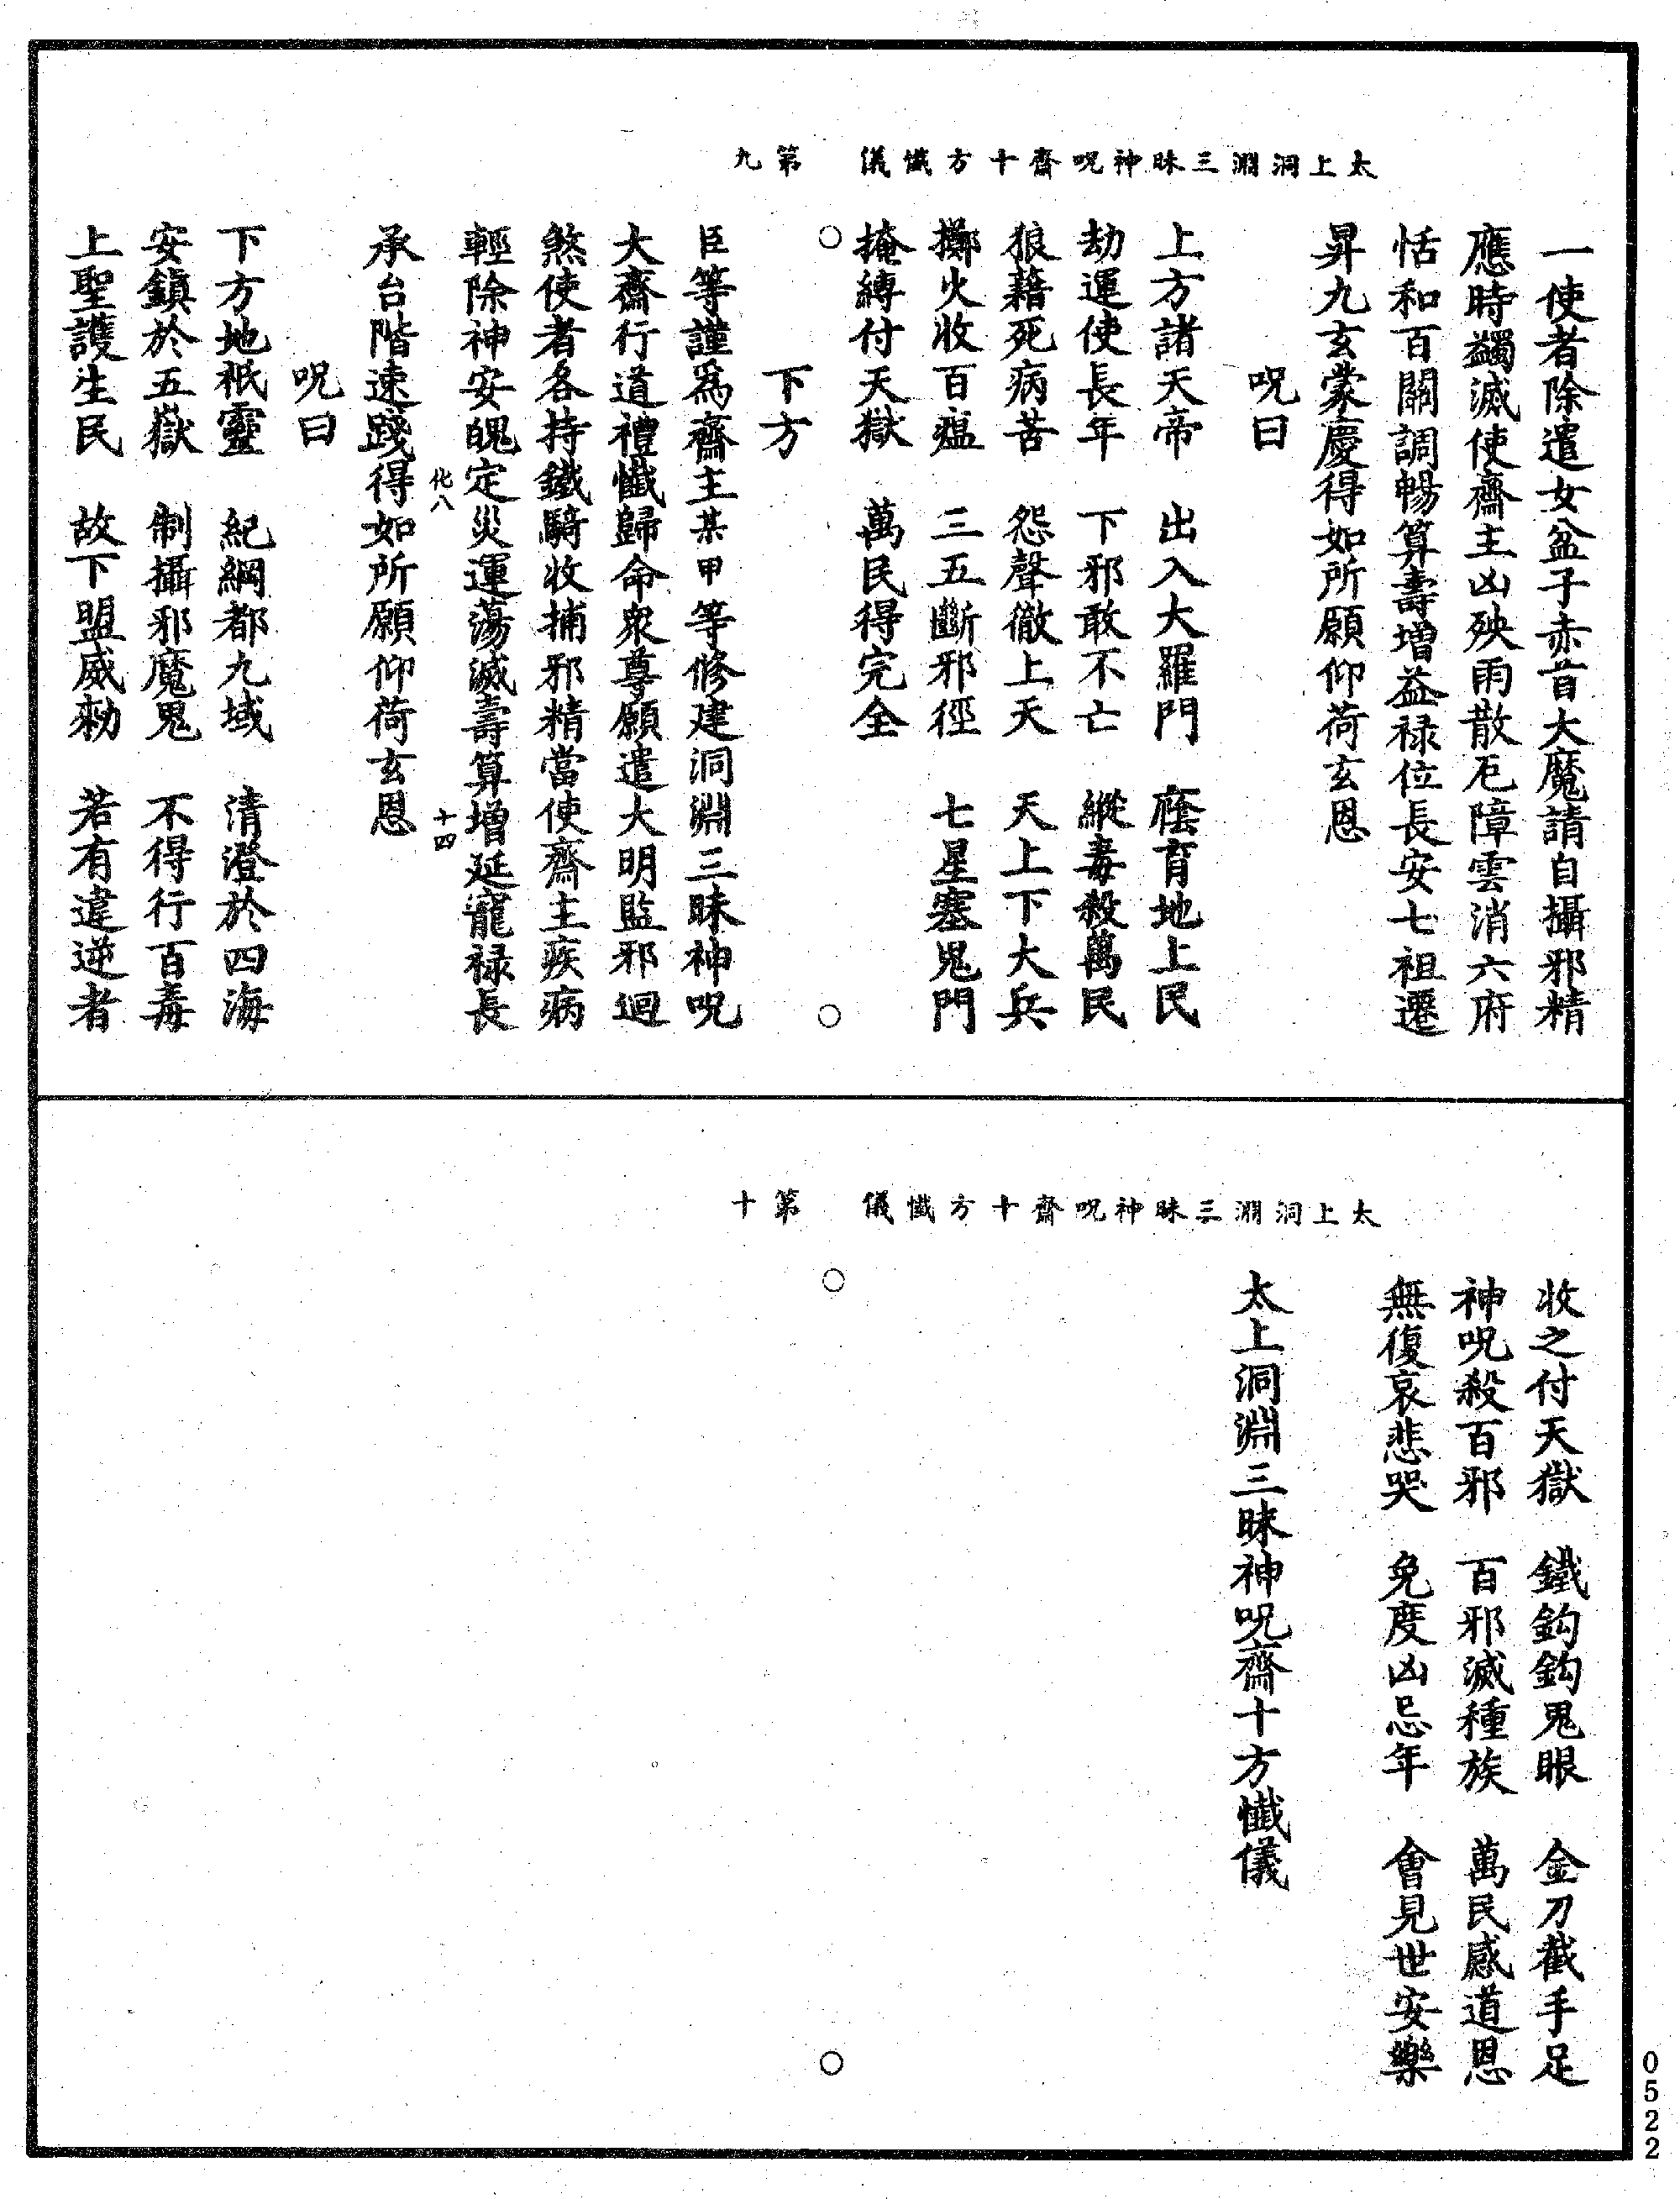 太上洞淵三昧神呪齋十方懺儀　第九
一使者除遣女盆子赤首大魔請自攝邪精
應時蠲滅使齋主凶殃雨散厄障雲消六府
恬和百關調暢算壽增益禄位長安七祖遷
昇九玄蒙慶得如所願仰荷玄恩
呪曰
上方諸天帝　出入大羅門　廕育地上民
劫運使長年　下邪敢不亡　縱毒殺萬民
狼藉死病苦　怨聲徹上天　天上下大兵
擲火收百瘟　三五斷邪徑　七星塞鬼門
掩縛付天獄　萬民得完全
下方
臣等謹爲齋主某甲等修建洞淵三昧神呪
大齋行道禮懺歸命衆尊願遣大明監邪迴
煞使者各持鐵騎收捕邪精當使齋主疾病
輕除神安魄定災運蕩滅壽算增延寵禄長
化八　十四
承台階速踐得如所願仰荷玄恩
呪曰
下方地祇靈　紀綱都九域　清澄於四海
安鎮於五嶽　制攝邪魔鬼　不得行百毒
上聖護生民　故下盟威勑　若有違逆者
太上洞淵三昧神呪齋十方懺儀　第十
收之付天獄　鐵鈎鈎鬼眼　金刀截手足
神呪殺百邪　百邪滅種族　萬民感道恩
無復哀悲哭　免度凶忌年　會見世安樂
太上洞淵三昧神呪齋十方懺儀
0522